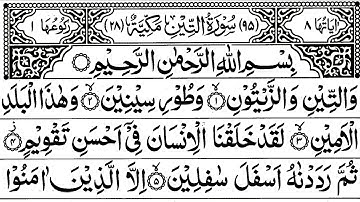 اٰيَاتُهَا ٨ (٩٥) سُوْرَةُ التِّيْنِ مَكِّيَّةٌ (٢٨) رُكُوْعُهَا ١
بِسْمِ اللّٰهِ الرَّحْمٰنِ الرَّحِيْمِ
وَالتِّيْنِ وَالزَّيْتُوْنِ ۝١ وَطُوْرِ سِيْنِيْنَ ۝٢ وَهٰذَا الْبَلَدِ
الْاَمِيْنِ ۝٣ لَقَدْ خَلَقْنَا الْاِنْسَانَ فِيْٓ اَحْسَنِ تَقْوِيْمٍ ۝٤
ثُمَّ رَدَدْنٰهُ اَسْفَلَ سٰفِلِيْنَ ۝٥ اِلَّا الَّذِيْنَ اٰمَنُوْا